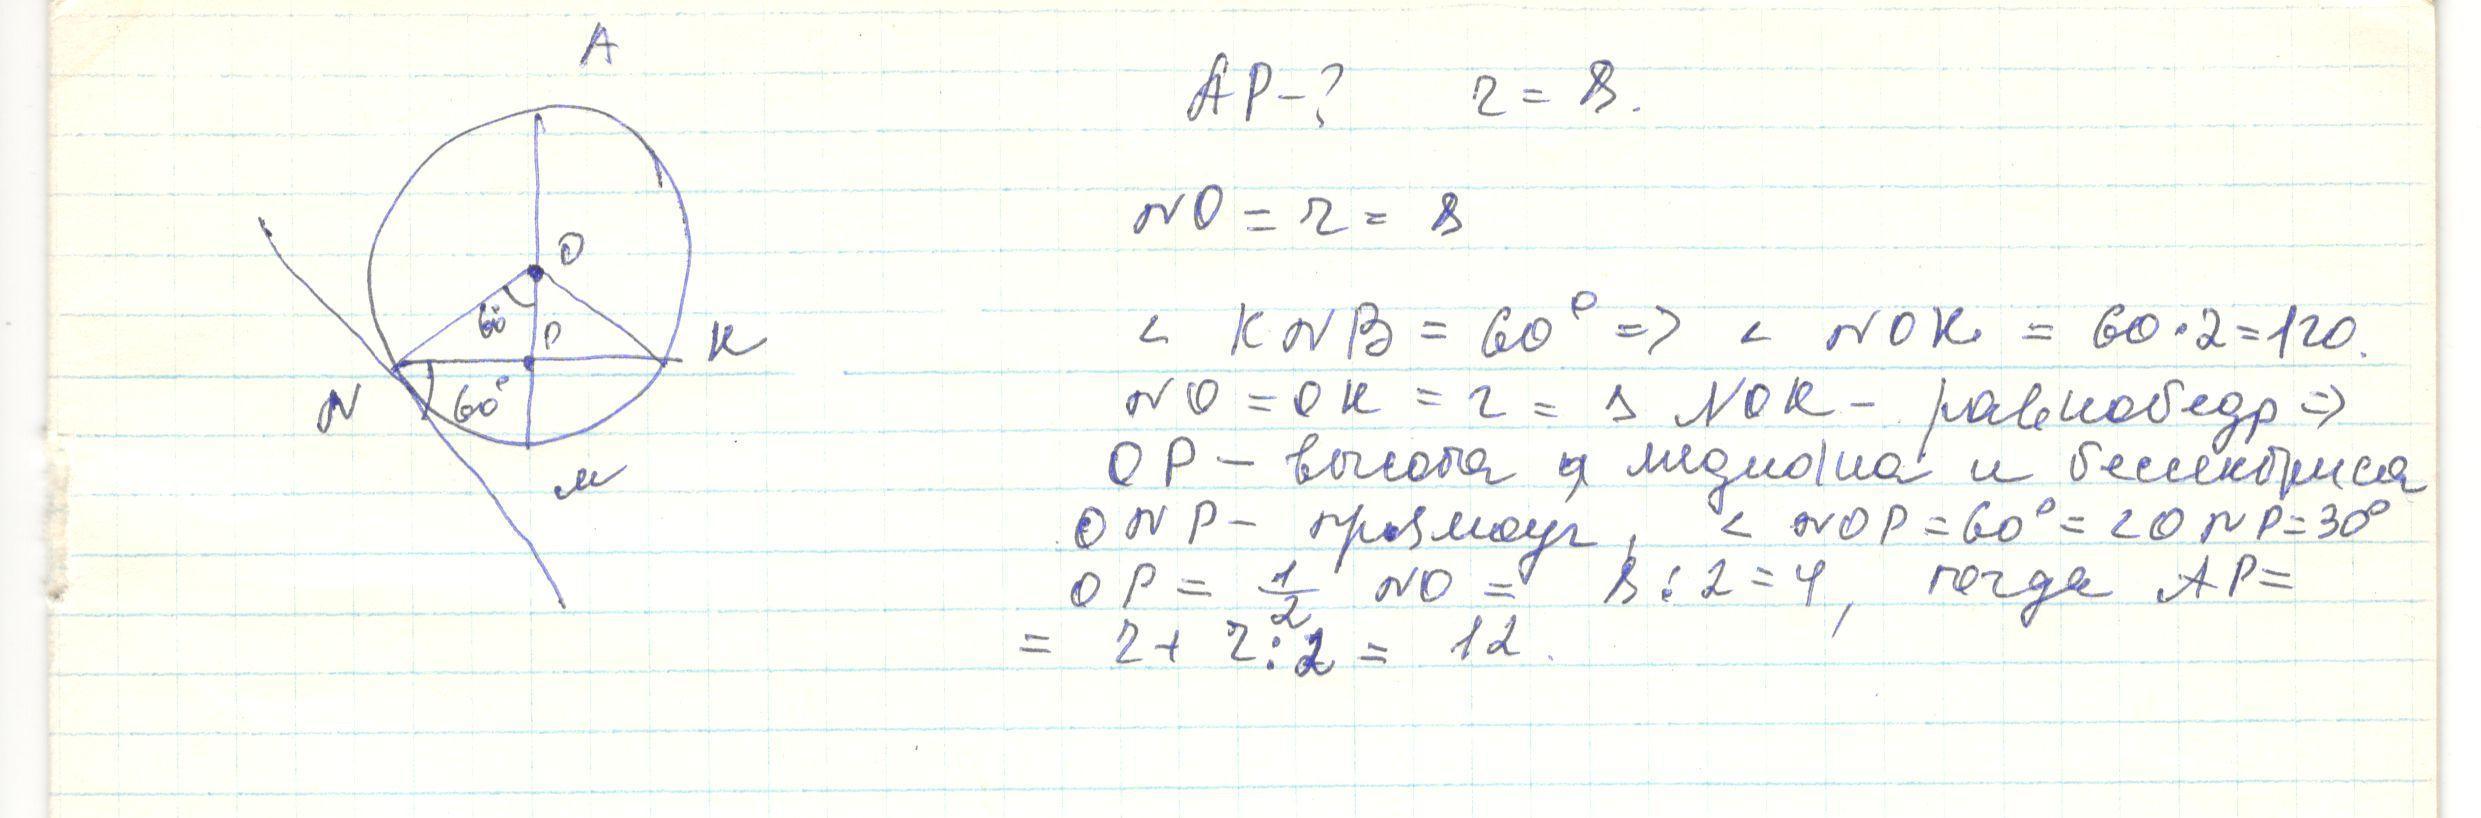 A
AP-? r = 8.
NO = r = 8
O
60°
P
K
N
60°
M
< KNB = 60° => < NOK = 60·2=120.
NO = OK = r = 8 NOK - равнобедр =>
OP - высота и медиана и бессектриса
ONP - прямоуг, < NOP = 60° = < ONP = 30°
OP = 1/2 NO = 8:2 = 4, тогда AP =
= r + r:2 = 12.